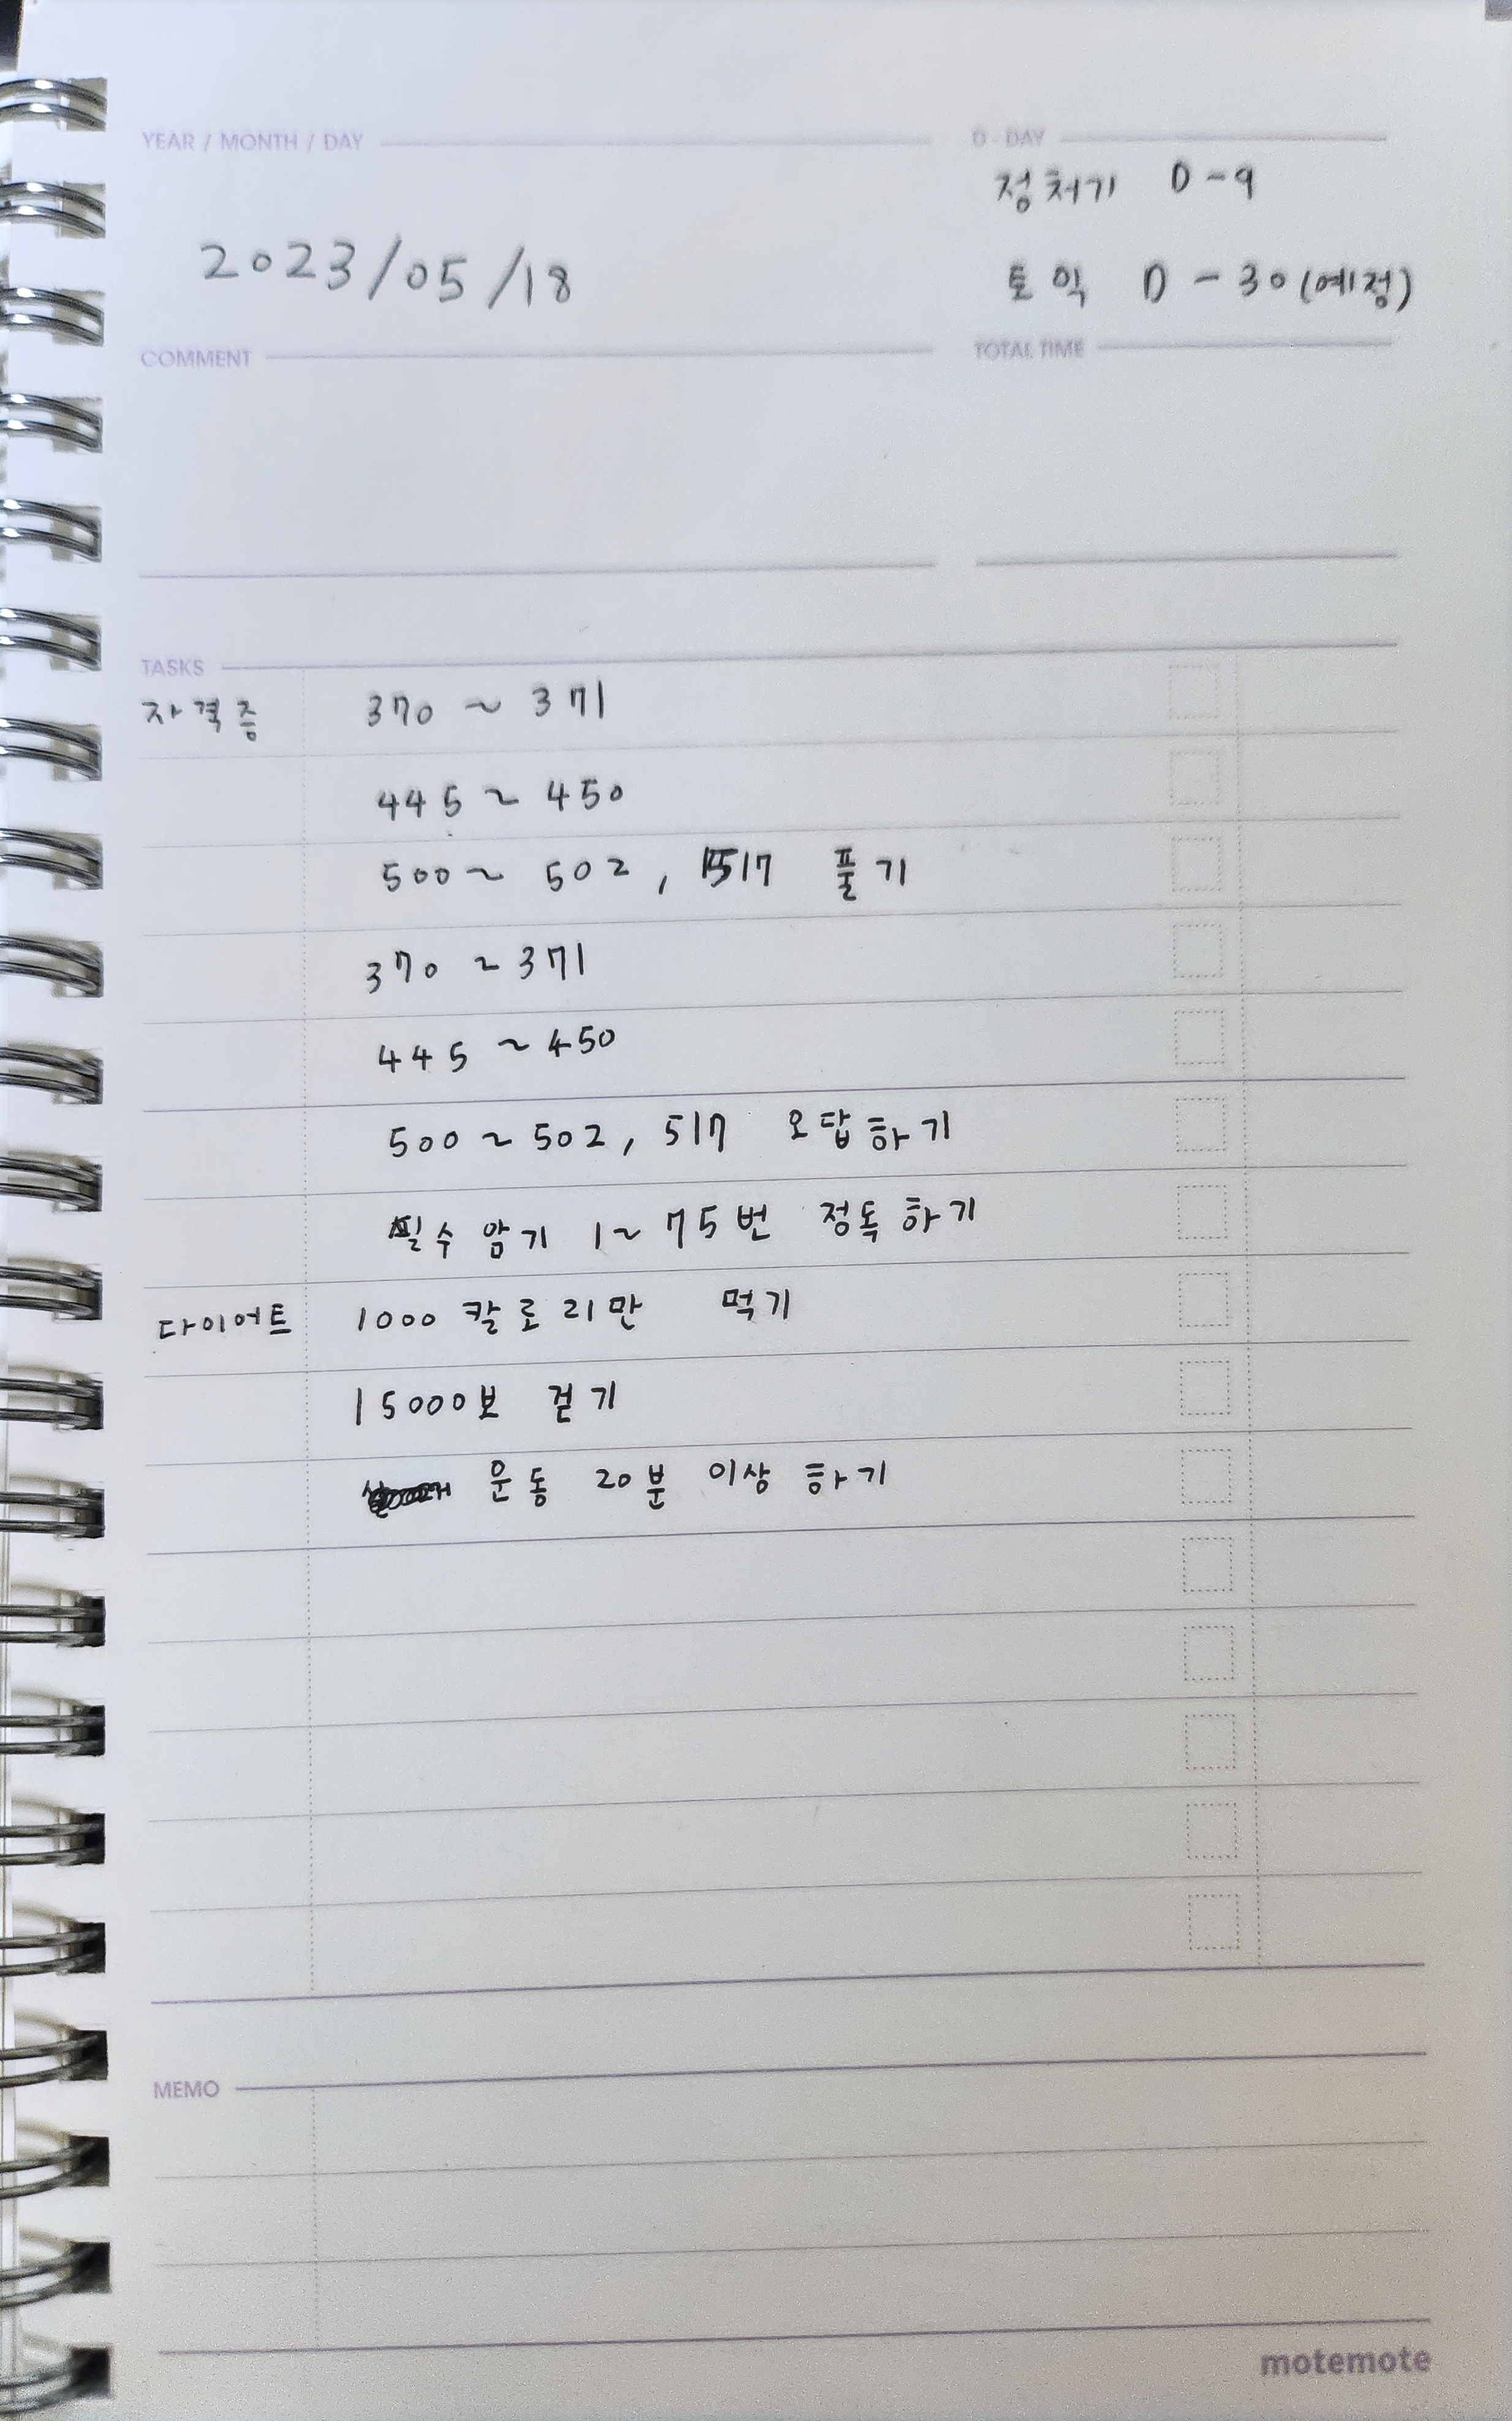 YEAR / MONTH / DAY
2023/05/18
D-DAY
정처기 D-9
토익 D-30(예정)
COMMENT
TOTAL TIME
TASKS
자격증 370 ~ 371
445 ~ 450
500 ~ 502, 517 풀기
370 ~ 371
445 ~ 450
500 ~ 502, 517 오답하기
필수 암기 1~75번 정독하기
다이어트 1000칼로리만 먹기
15000보 걷기
운동 20분 이상 하기
MEMO
motemote